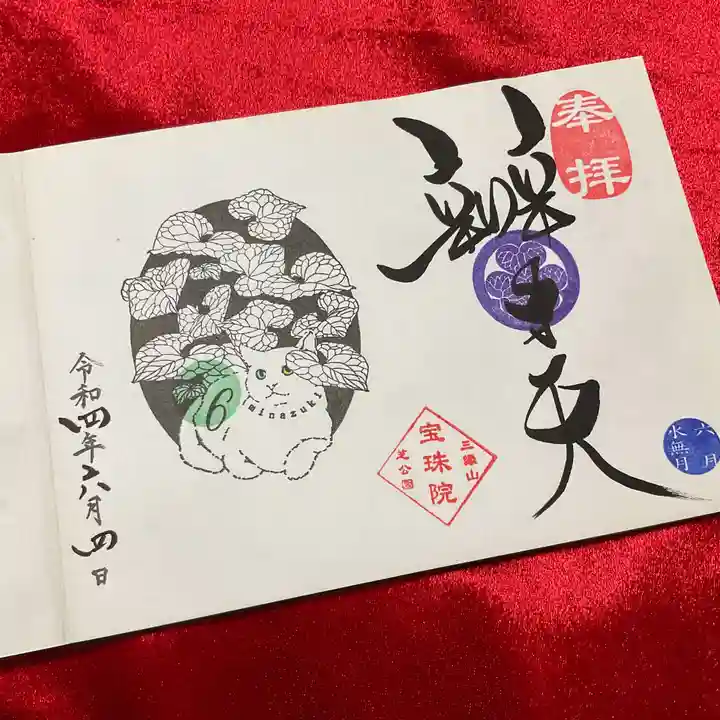 奉拝
辯才天
六月
水無月
三縁山
宝珠院
芝公園
6
minazuki
令和四年六月四日